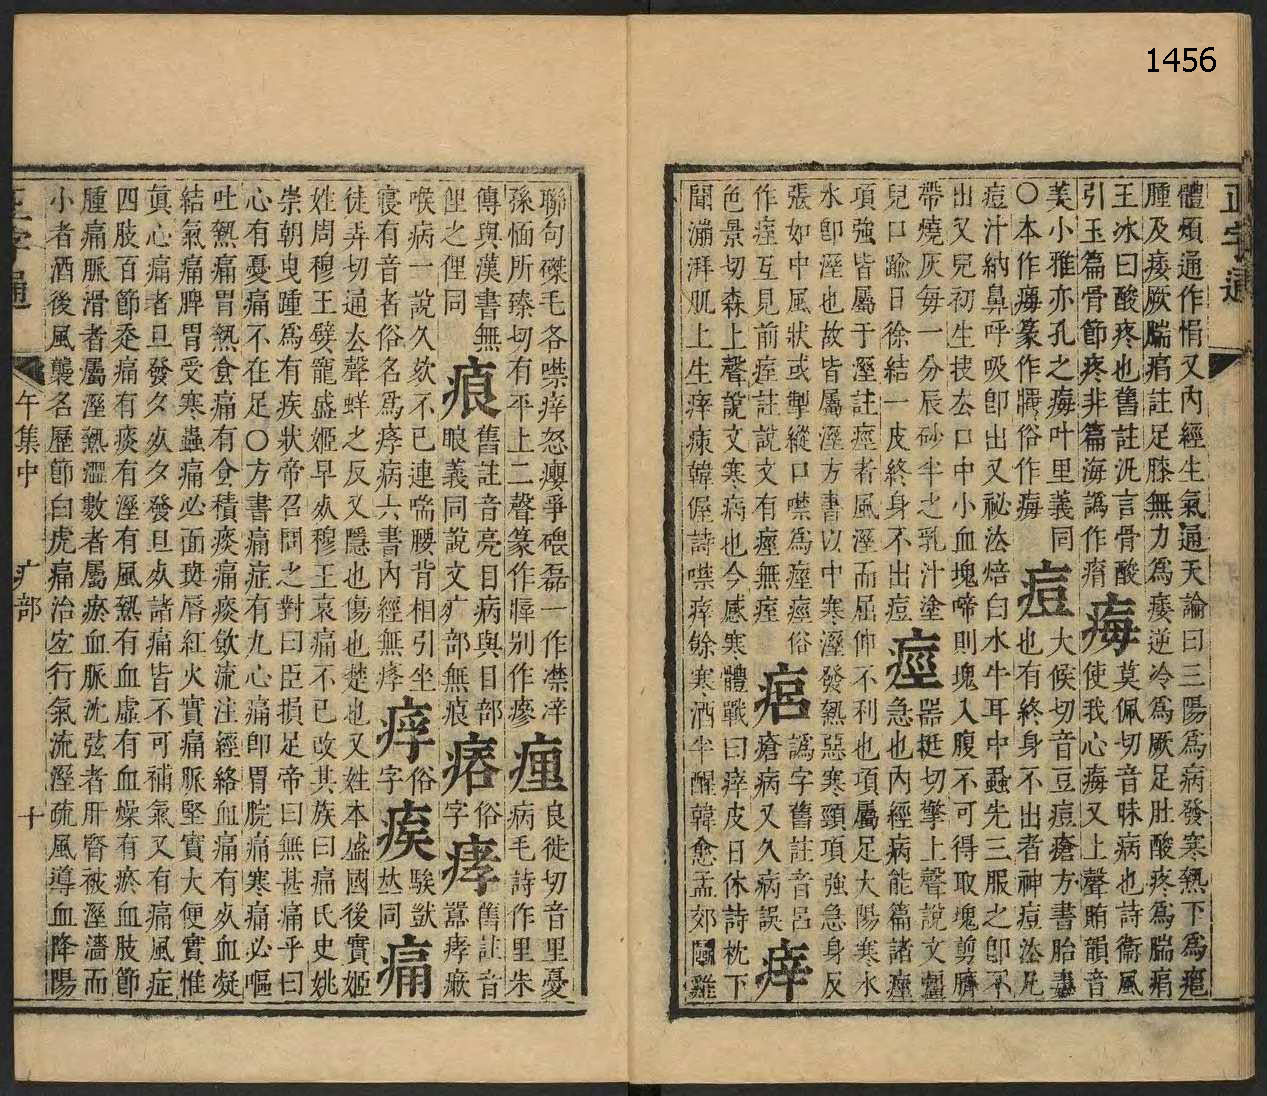 1456
正字通
體煩通作悁又內經生氣通天論曰三陽爲病發寒熱下爲痝
腫及痿厥腨㾓註足膝無力爲痿逆冷爲厥足肚酸疼爲腨㾓
王冰曰酸疼也舊註汎言骨酸 痗 莫佩切音昧病也詩衞風
引玉篇骨節疼非篇海譌作痟 使我心痗又上聲賄韻音
美小雅亦孔之痗叶里義同 痘 大候切音豆痘瘡方書胎毒
〇本作痗篆作㾲俗作痗 也有終身不出者神痘法凡
痘汁納鼻呼吸卽出又祕法焙白水牛耳中蝨先三服之卽不
出又兒初生抉去口中小血塊啼則塊入腹不可得取塊剪臍
帶燒灰每一分辰砂半之乳汁塗 痙 器挺切擎上聲說文彊
兒口踰日徐結一皮終身不出痘 急也內經病能篇諸痙
項強皆屬于溼註痙者風溼而屈伸不利也項屬足大陽寒水
水卽溼也故皆屬溼方書以中寒溼發熱惡寒頸項強急身反
張如中風狀或掣縱口噤爲痙痙俗 㾔 譌字舊註音呂
作痓互見前痓註說文有痙無痓 瘡病又久病誤 痒
色景切森上聲說文寒病也今感寒體戰曰痒皮日休詩枕下
聞澎湃肌上生痒㾕韓偓詩噤痒餘寒酒半醒韓愈孟郊鬭雞
聯句磔毛各噤痒怒癭爭碨磊一作凚涬 良徙切音里憂
孫愐所臻切有平上二聲篆作㾕別作瘮 㾖 病毛詩作里朱
傳與漢書無 痕 舊註音亮目病與目部 㾗 俗 痵 舊註音
俚之俚同 眼義同說文疒部無痕 字 嚣痵瘷
喉病一說久欬不已連喘腰背相引坐 痵 俗 㾛 騃獃
寢有音者俗名爲痵病六書內經無痵 字 㚎同 痛
徒弄切通去聲蛘之反又隱也傷也楚也又姓本盛國後實姬
姓周穆王嬖寵盛姬早歿穆王哀痛不已改其族曰痛氏史姚
崇朝曳踵爲有疾狀帝召問之對曰臣損足帝曰無甚痛乎曰
心有憂痛不在足〇方書痛症有九心痛卽胃脘痛寒痛必嘔
吐熱痛胃熱食痛有食積痰痛痰飮流注經絡血痛有歿血凝
結氣痛脾胃受寒蟲痛必面斑脣紅火實痛脈堅實大便實惟
眞心痛者旦發夕歿夕發旦歿諸痛皆不可補氣又有痛風症
四肢百節走痛有痰有溼有風熱有血虛有血燥有瘀血肢節
腫痛脈滑者屬溼熱濇數者屬瘀血脈沈弦者肝腎被溼濇而
小者酒後風襲名歷節白虎痛治宐行氣流溼疏風導血降陽
正字通
午集中 疒部 十